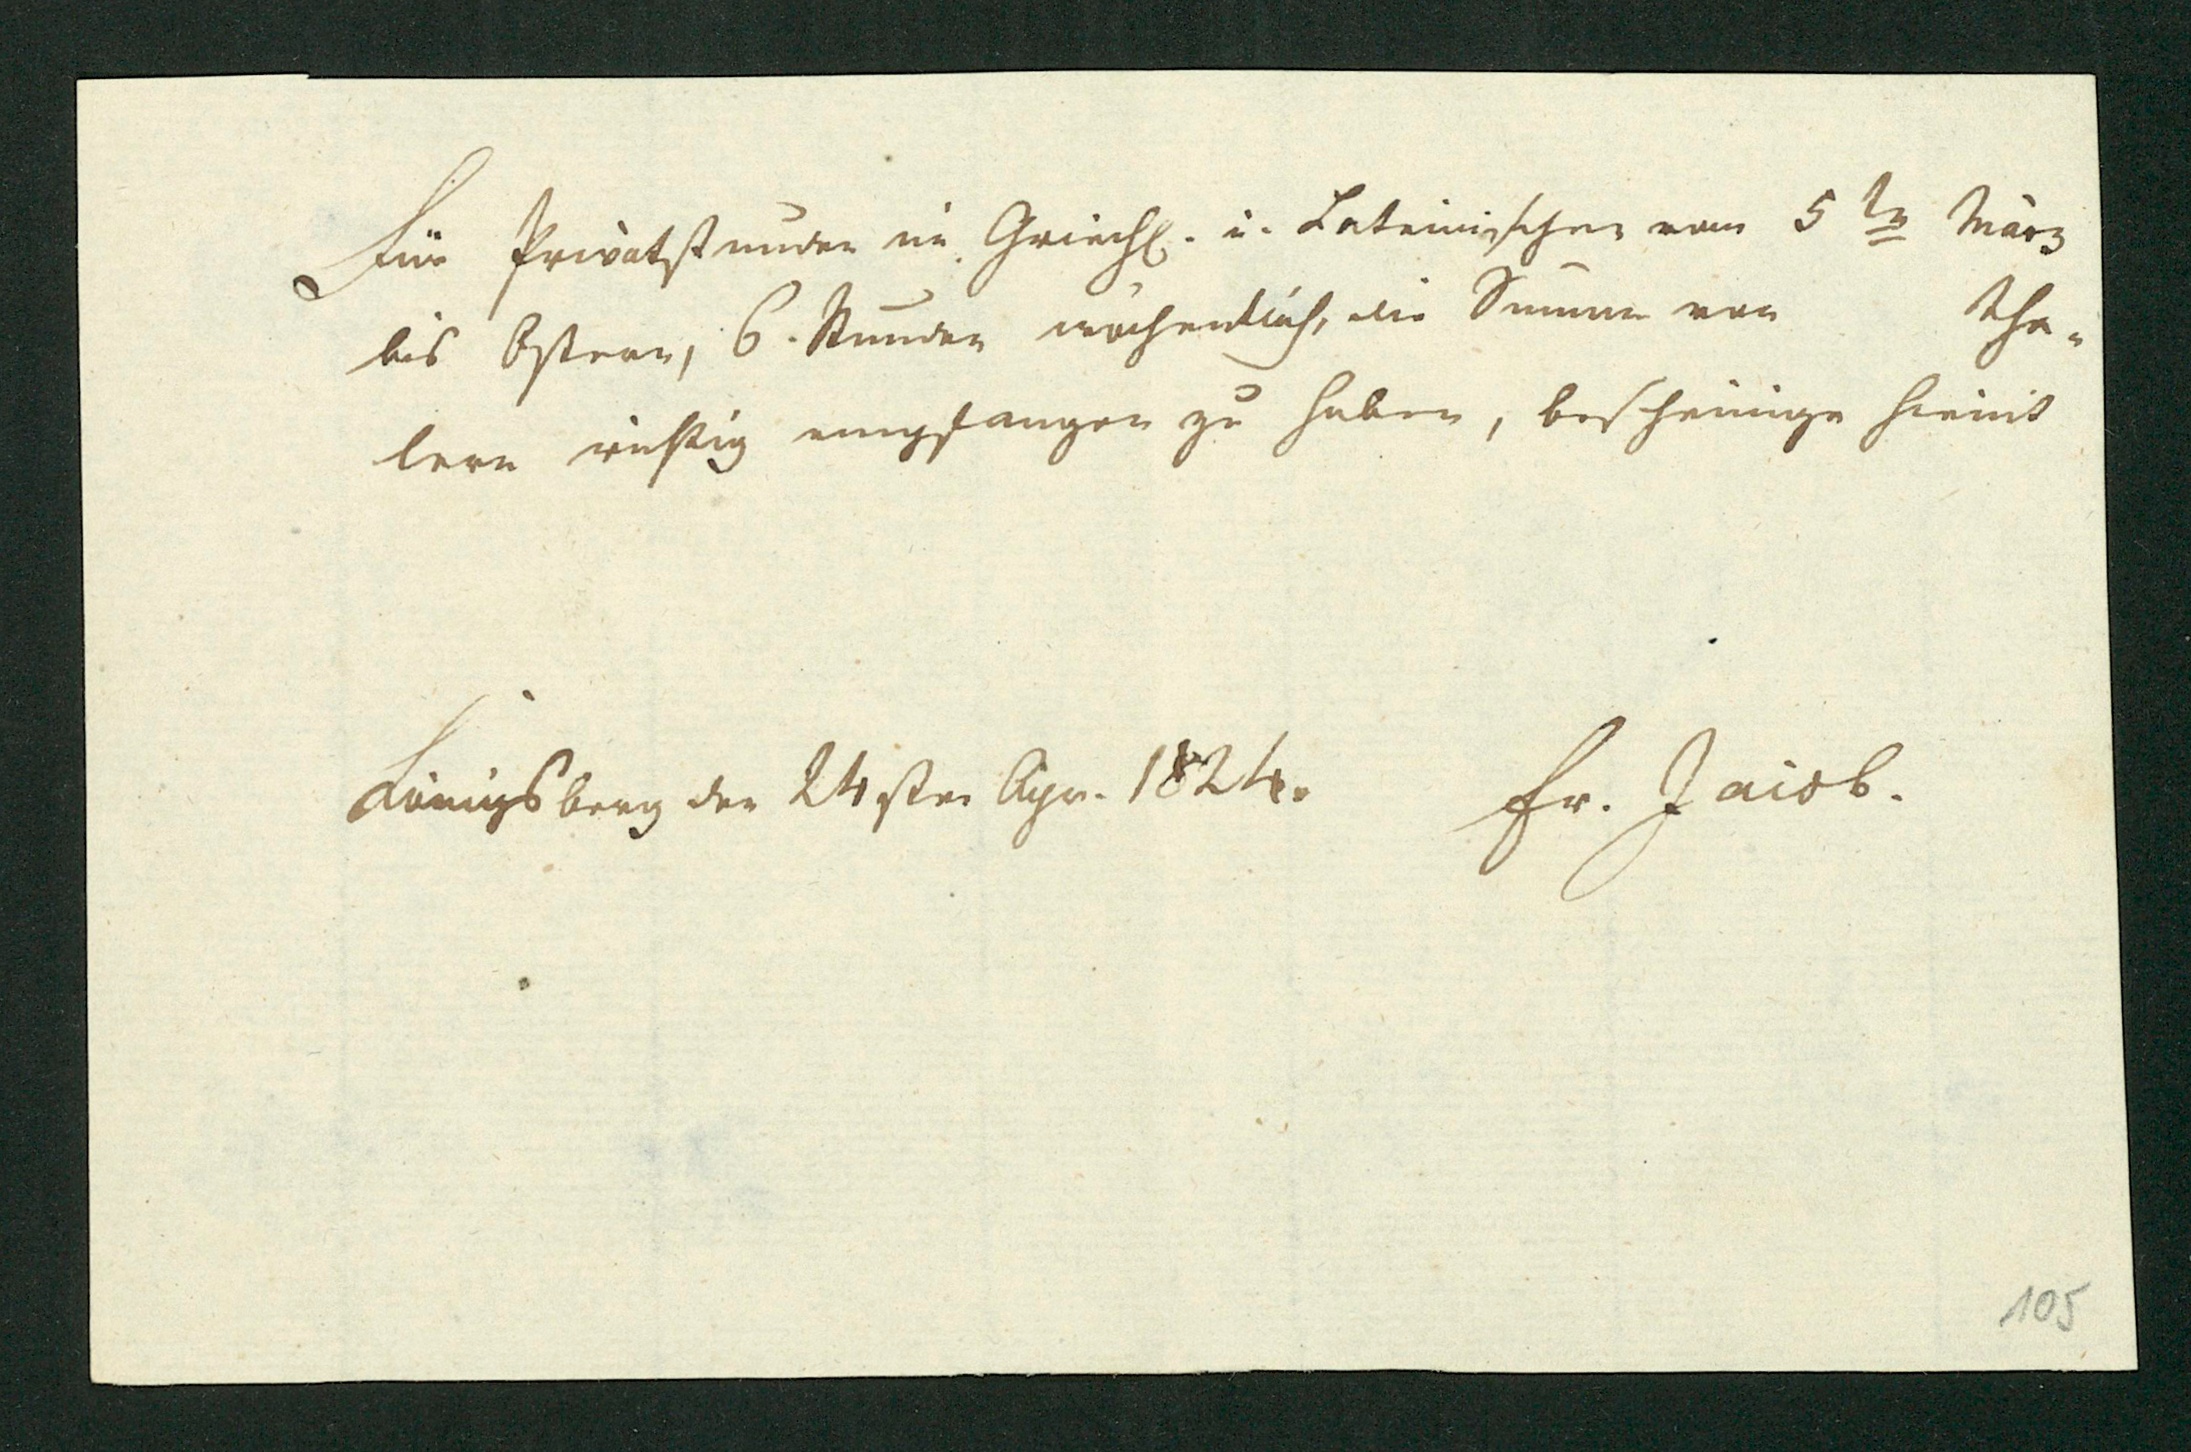 Für Privatstunden im Griech. u. Lateinischen vom 5ten März
bis Ostern, 6. Stunden wöchentlich, die Summe von Tha-
lern richtig empfangen zu haben, bescheinige hiemit
Königsberg den 24sten Apr. 1824. Fr. Jacob.
105